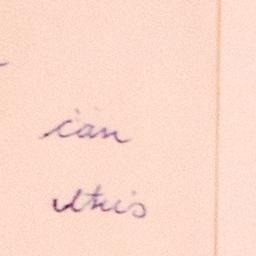 can
this